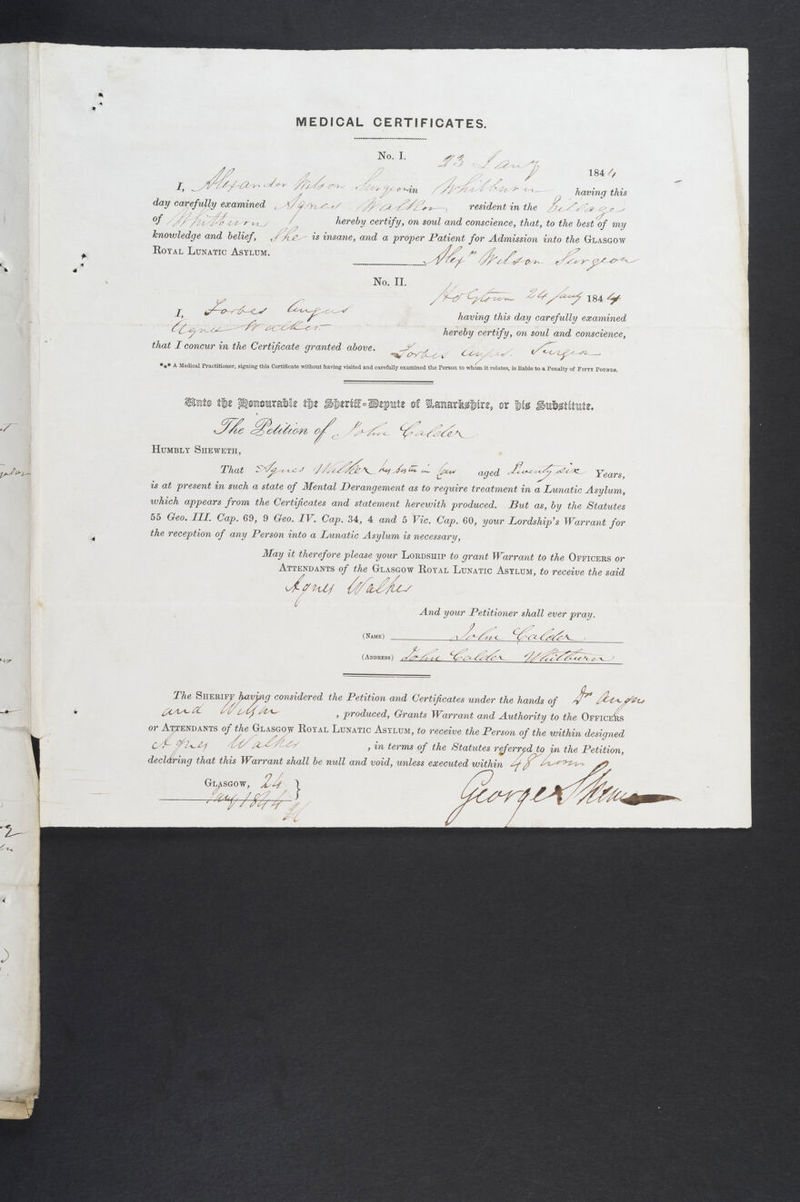 MEDICAL CERTIFICATES.
No. I.
23 Jany 1844
I, Alexander Wilson Surgeon in Whitburn having this
day carefully examined Agnes Walker resident in the Village
of Whitburn hereby certify, on soul and conscience, that, to the best of my
knowledge and belief, She is insane, and a proper Patient for Admission into the GLASGOW
ROYAL LUNATIC ASYLUM.
Alexr Wilson Surgeon
No. II.
Holytown 24 Jany 1844
I, Forbes Angus having this day carefully examined
Agnes Walker hereby certify, on soul and conscience,
that I concur in the Certificate granted above.
Forbes Angus. Surgeon
*** A Medical Practitioner, signing this Certificate without having visited and carefully examined the Person to whom it relates, is liable to a Penalty of FIFTY POUNDS.
Unto the Honourable the Sheriff-Depute of Lanarkshire, or his Substitute.
The Petition of John Calder
HUMBLY SHEWETH,
That Agnes Walker his sister in law aged twenty six Years,
is at present in such a state of Mental Derangement as to require treatment in a Lunatic Asylum,
which appears from the Certificates and statement herewith produced. But as, by the Statutes
55 Geo. III. Cap. 69, 9 Geo. IV. Cap. 34, 4 and 5 Vic. Cap. 60, your Lordship's Warrant for
the reception of any Person into a Lunatic Asylum is necessary,
May it therefore please your LORDSHIP to grant Warrant to the OFFICERS or
ATTENDANTS of the GLASGOW ROYAL LUNATIC ASYLUM, to receive the said
Agnes Walker
And your Petitioner shall ever pray.
(NAME) John Calder
(ADDRESS) John Calder Whitburn
The SHERIFF having considered the Petition and Certificates under the hands of Dr Angus
and Wilson , produced, Grants Warrant and Authority to the OFFICERS
or ATTENDANTS of the GLASGOW ROYAL LUNATIC ASYLUM, to receive the Person of the within designed
Agnes Walker , in terms of the Statutes referred to in the Petition,
declaring that this Warrant shall be null and void, unless executed within 48 hours
GLASGOW, 24 }
Jany 1844
George Skene